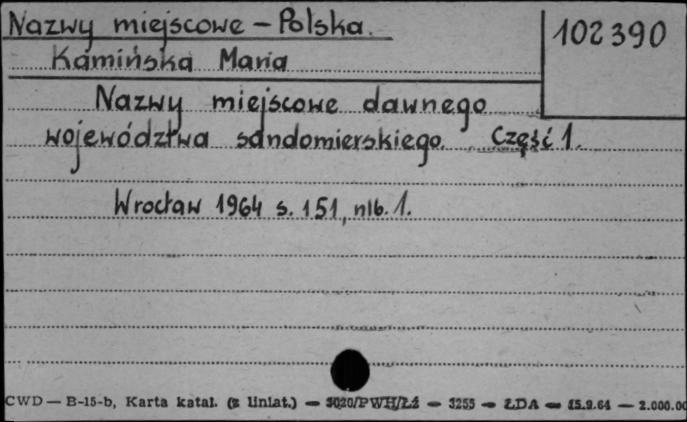 Nazwy miejscowe – Polska. 102390
Kamińska Maria
Nazwy miejscowe dawnego
województwa sandomierskiego. Część 1.
Wrocław 1964 s. 151, nlb. 1.
CWD — B-15-b, Karta katal. (z liniat.) — 3020/PWH/Łź — 3255 — ŁDA — 15.9.61 — 2.000.00